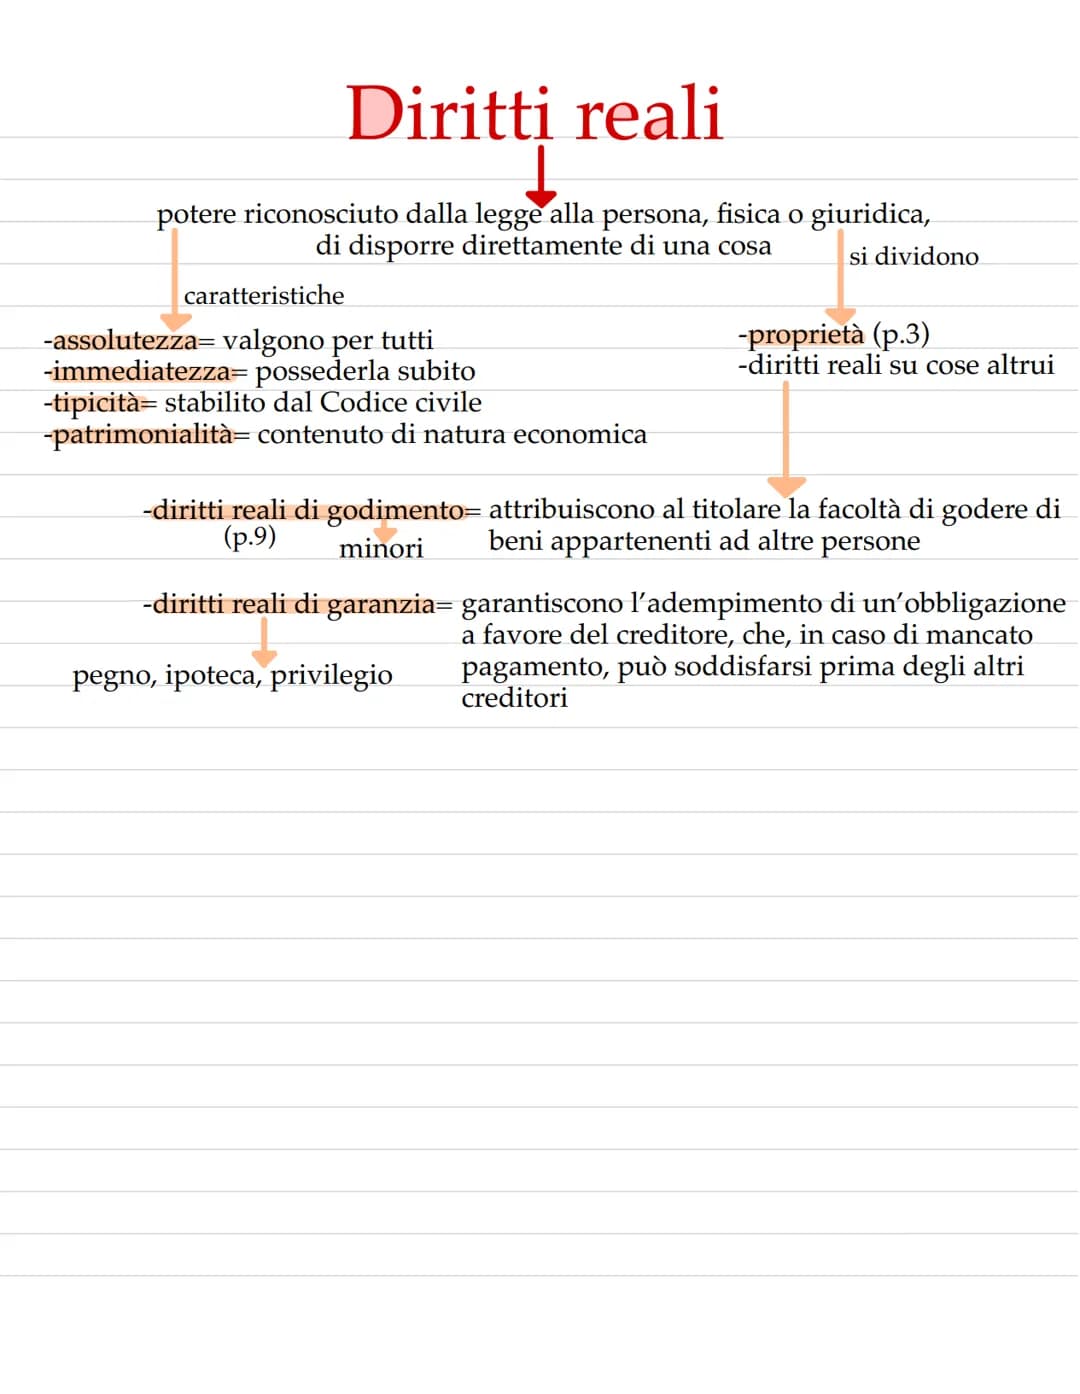 Diritti reali
potere riconosciuto dalla legge alla persona, fisica o giuridica,
di disporre direttamente di una cosa
si dividono
caratteristiche
-assolutezza= valgono per tutti
-immediatezza= possederla subito
-tipicità= stabilito dal Codice civile
-patrimonialità= contenuto di natura economica
-proprietà (p.3)
-diritti reali su cose altrui
-diritti reali di godimento= attribuiscono al titolare la facoltà di godere di
(p.9) minori beni appartenenti ad altre persone
-diritti reali di garanzia= garantiscono l'adempimento di un'obbligazione
a favore del creditore, che, in caso di mancato
pegno, ipoteca, privilegio pagamento, può soddisfarsi prima degli altri
creditori